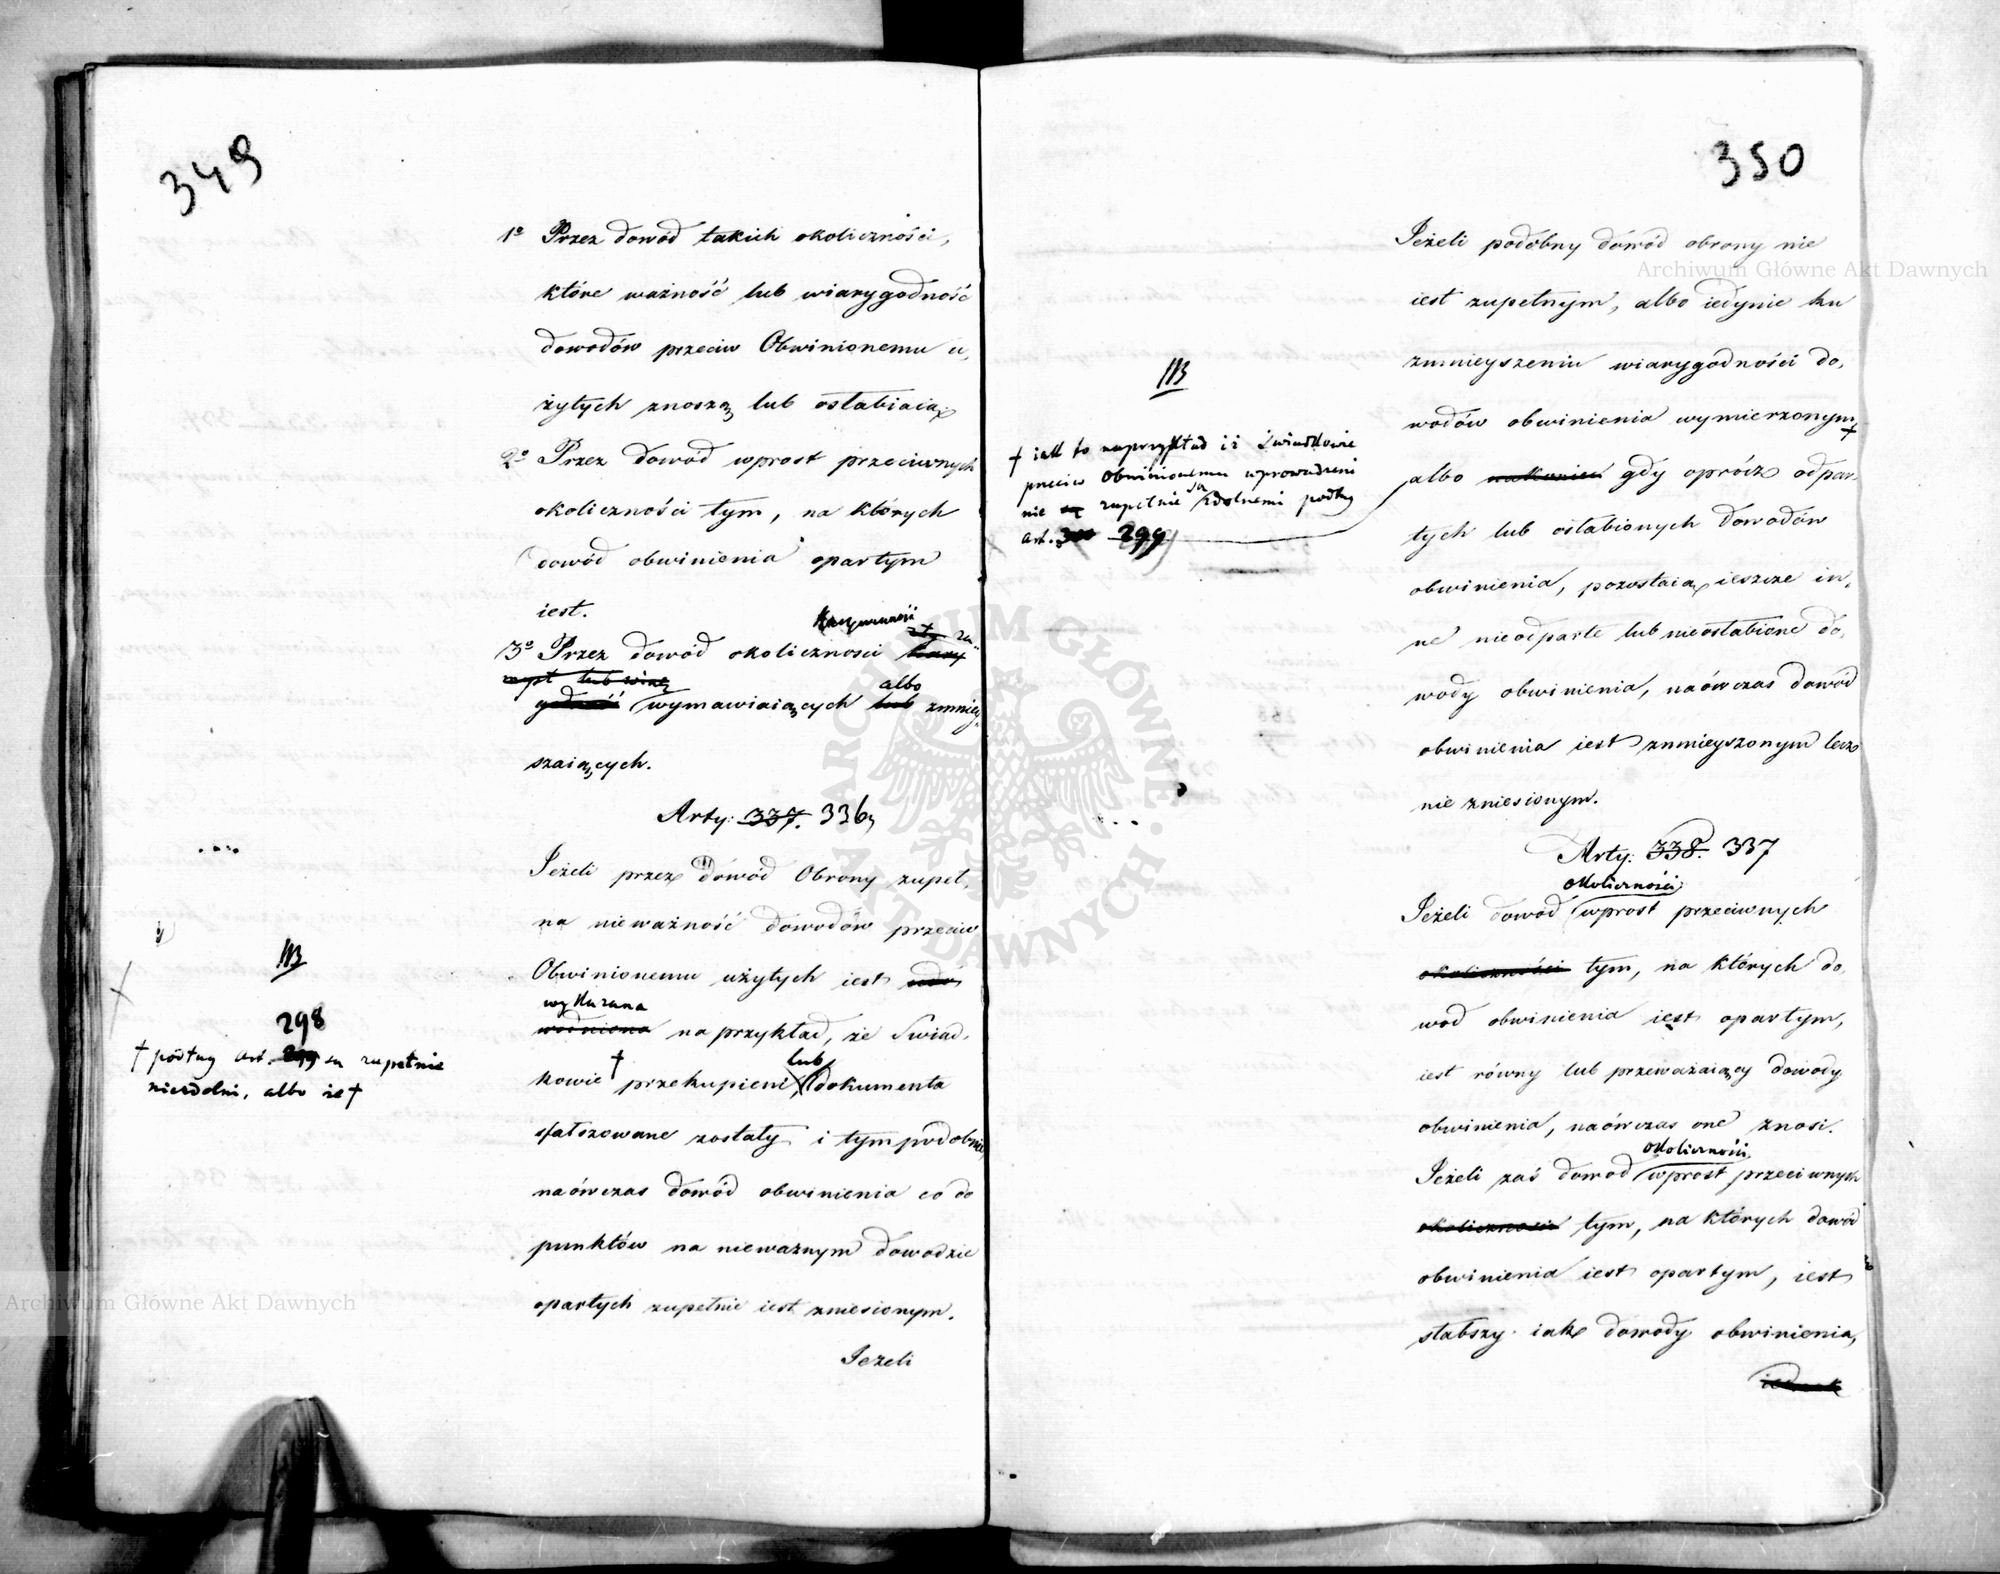 349
1º Przez dowód takich okoliczności,
które ważność lub wiarygodność
dowodów przeciw Obwinionemu u,
żytych znoszą lub osłabiaią.
2º Przez dowód wprost przeciwnych
okoliczności tym, na których
dowód obwinienia opartym
iest.
3º Przez dowód okoliczności
albo
wymawiaiących lub zmniey,
szaiących.
Arty: 337. 336
Jeżeli przez dowód Obrony zupeł,
na nieważność dowodów przeciw
Obwinionemu użytych iest
wykazana
wodniona na przykład, że Swiad,
lub
kowie † przekupieni, dokumenta
sfałszowane zostały i tym podobnie
naówczas dowód obwinienia co do
punktów na nieważnym dowodzie
opartych zupełnie iest zniesionym.
Jeżeli
NB
298
† podług art. 299 są zupełnie
niezdolni, albo że †
350
Jeżeli podobny dowód obrony nie
iest zupełnym, albo iedynie ku
zmnieyszeniu wiarygodności do,
wodów obwinienia wymierzonym †
albo nakoniec gdy oprócz odpar,
tych lub osłabionych dowodów
obwinienia, pozostaią ieszcze in,
ne nieodparte lub nieosłabione do,
wody obwinienia, naówczas dowód
obwinienia iest zmnieyszonym lecz
nie zniesionym.
Arty: 338. 337
okoliczności
Jeżeli dowód wprost przeciwnych
okoliczności tym, na których do,
wód obwinienia iest opartym,
iest równy lub przeważaiący dowody
obwinienia, naówczas one znosi.
okoliczności
Jeżeli zaś dowód wprost przeciwnych
okoliczności tym, na których dowód
obwinienia iest opartym, iest
słabszy iak dowody obwinienia,
iednak
NB
† iak to naprzykład iż Świadkowie
przeciw Obwinionemu wprowadzeni
są
nie są zupełnie zdolnemi podług
art. 299
Archiwum Główne Akt Dawnych
Archiwum Główne Akt Dawnych
ARCHIWUM GŁÓWNE AKT DAWNYCH